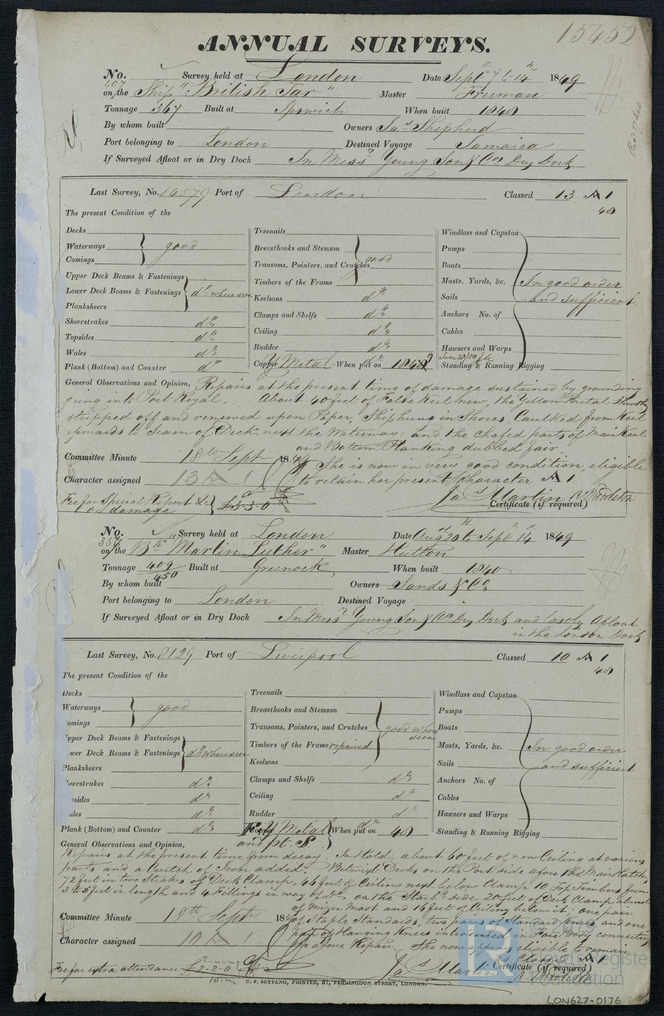 15452
ANNUAL SURVEYS.
No. 607 Survey held at London Date Sept 7 to 14 1849
on the Ship "British Tar" Master Freeman
Tonnage 367 Built at Ipswich When built 1840
By whom built Owners Jas Shepherd
Port belonging to London Destined Voyage Jamaica
If Surveyed Afloat or in Dry Dock In Messrs Young Son & Cos Dry Dock
Last Survey, No. 14579 Port of London Classed 13 A 1
40
The present Condition of the
Decks
Waterways good
Comings
Upper Deck Beams & Fastenings
Lower Deck Beams & Fastenings do where seen
Planksheers
Sheerstrakes do
Topsides do
Wales do
Plank (Bottom) and Counter do
Treenails
Breasthooks and Stemson
Transoms, Pointers, and Crutches good
Timbers of the Frame
Keelsons do
Clamps and Shelfs do
Ceiling do
Rudder do
Copper Y Metal When put on
Windlass and Capstan
Pumps
Boats
Masts, Yards, &c. In good order
Sails and sufficient
Anchors No. of
Cables
Hawsers and Warps
Standing & Running Rigging
General Observations and Opinion, Repairs at the present time of damage sustained by grounding
going into Port Royal. About 40 feet of False Keel new, the Yellow Metal Sheathg
stripped off and renewed upon Paper, Ship hung in Shores Caulked from Keel
upwards to Seam of Deck next the Waterway, and the chafed parts of Main Keel
and Bottom Planking dubbed fair
Committee Minute 18th Sept 1849 She is now in very good condition, eligible
Character assigned 13 A 1 to retain her present character A 1
Fee for Special Report &c
on damage
Jas Martin
Certificate (if required)
No. 356 Survey held at London Date Aug 20 to Sept 14 1849
on the Bk "Martin Luther" Master Hutton
Tonnage 409/450 Built at Greenock When built 1840
By whom built Owners Sands & Co
Port belonging to London Destined Voyage
If Surveyed Afloat or in Dry Dock In Messrs Young Son & Cos Dry Dock and lastly Afloat
in the London Dock
Last Survey, No. 8129 Port of Liverpool Classed 10 A 1
40
The present Condition of the
Decks
Waterways good
Comings
Upper Deck Beams & Fastenings
Lower Deck Beams & Fastenings do where seen
Planksheers
Sheerstrakes do
Topsides do
Wales do
Plank (Bottom) and Counter do
Treenails
Breasthooks and Stemson
Transoms, Pointers, and Crutches good where seen
Timbers of the Frame repaired
Keelsons
Clamps and Shelfs do
Ceiling do
Rudder do
Y Metal When put on 49
and pt
Windlass and Capstan
Pumps
Boats
Masts, Yards, &c. In good order
Sails and sufficient
Anchors No. of
Cables
Hawsers and Warps
Standing & Running Rigging
General Observations and Opinion,
Repairs at the present time from decay. In Hold, about 60 feet of new Ceiling at various
parts and a Crutch of Iron added. Betwixt Decks on the Port side before the Main Hatch,
72 feet in two Strakes of Deck Clamp, 46 feet of Ceiling next below Clamp 10 Top Timbers from
3 to 6 feet in length and 4 Fillings in way of Do on the Starbd side 20 feet of Deck Clamp abreast
of Mizen Mast and 16 feet of Ceiling below it, one pair
of Staple Standards, two pairs of Standard Knees and one
Committee Minute 18th Sept 1849
Character assigned 10 A 1
Fee for extra attendance £2-2-0
Jas Martin
Certificate (if required)
C. F. SEYFANG, PRINTER, 57, FARRINGDON STREET, LONDON.
LR
Lloyd's Register
Foundation
LON627-0176